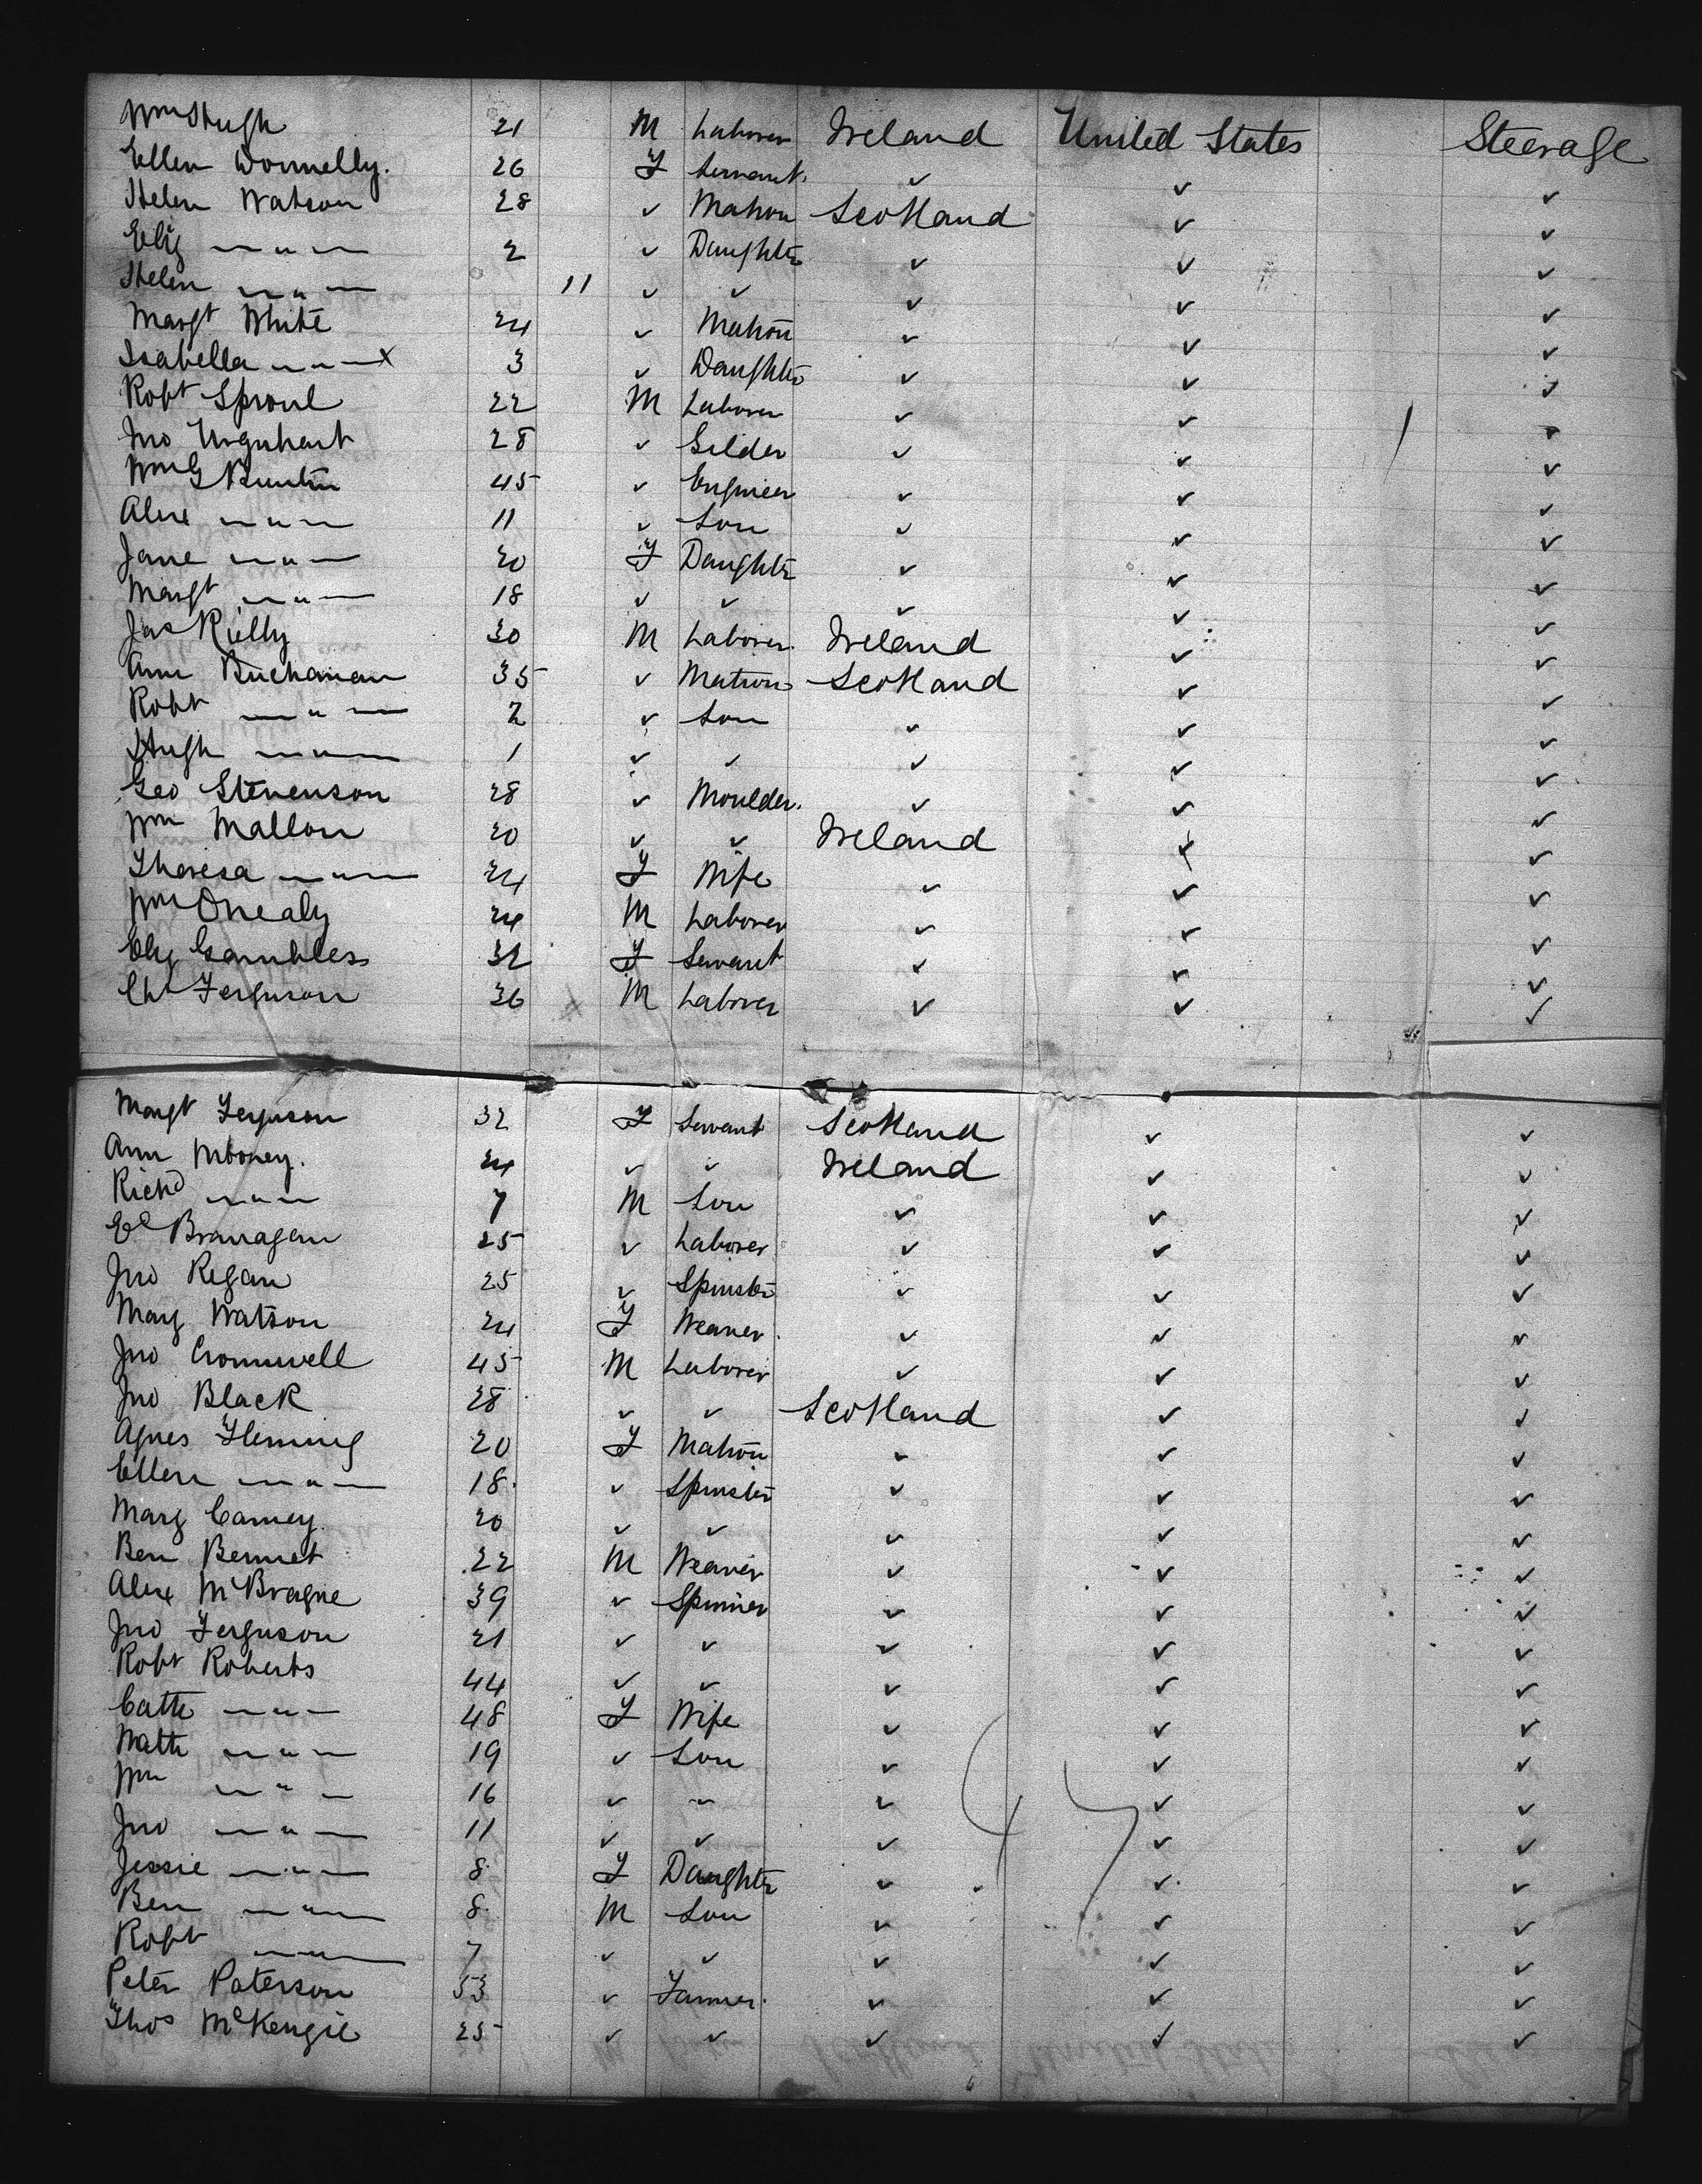 Wm Hugh 21 M Laborer Ireland United States Steerage
Ellen Donnelly. 26 F Servant. ✓ ✓ ✓
Helen Watson 28 ✓ Matron Scotland ✓ ✓
Eliz — " — 2 ✓ Daughter ✓ ✓ ✓
Helen — " — 11 ✓ ✓ ✓ ✓ ✓
Margt White 24 ✓ Matron ✓ ✓ ✓
Isabella — " — x 3 ✓ Daughter ✓ ✓ ✓
Robt Sproul 22 M Laborer ✓ ✓ ✓
Jno Urquhart 28 ✓ Gilder ✓ ✓ ✓
Wm G Buntin 45 ✓ Engineer ✓ ✓ ✓
Alex — " — 11 ✓ Son ✓ ✓ ✓
Jane — " — 20 F Daughter ✓ ✓ ✓
Margt — " — 18 ✓ ✓ ✓ ✓ ✓
Jas Rielly 30 M Laborer. Ireland ✓ ✓
Ann Buchanan 35 ✓ Matron Scotland ✓ ✓
Robt — " — 2 ✓ Son ✓ ✓ ✓
Hugh — " — 1 ✓ ✓ ✓ ✓ ✓
Geo Stevenson 28 ✓ Moulder. ✓ ✓ ✓
Wm Mallon 20 ✓ ✓ Ireland ✓ ✓
Theresa — " — 24 F Wife ✓ ✓ ✓
Wm Onealy 24 M Laborer ✓ ✓ ✓
Eliz Gambless 32 F Servant ✓ ✓ ✓
Ch Ferguson 36 M Laborer ✓ ✓ ✓
Margt Ferguson 32 F Servant Scotland ✓ ✓
Ann Mooney. 24 ✓ ✓ Ireland ✓ ✓
Richd — " — 7 M Son ✓ ✓ ✓
Ed Branagan 25 ✓ Laborer ✓ ✓ ✓
Jno Regan 25 ✓ Spinster ✓ ✓ ✓
Mary Watson 24 F Weaver. ✓ ✓ ✓
Jno Cromwell 45 M Laborer ✓ ✓ ✓
Jno Black 28 ✓ ✓ Scotland ✓ ✓
Agnes Fleming 20 F Matron ✓ ✓ ✓
Ellen — " — 18 ✓ Spinster ✓ ✓ ✓
Mary Carney 20 ✓ ✓ ✓ ✓ ✓
Ben Bennet 22 M Weaver ✓ ✓ ✓
Alex McBrayne 39 ✓ Spinner ✓ ✓ ✓
Jno Ferguson 21 ✓ ✓ ✓ ✓ ✓
Robt Roberts 44 ✓ ✓ ✓ ✓ ✓
Cath — " — 48 F Wife ✓ ✓ ✓
Watt — " — 19 ✓ Son ✓ ✓ ✓
Wm — " — 16 ✓ ✓ ✓ ✓ ✓
Jno — " — 11 ✓ ✓ ✓ ✓ ✓
Jessie — " — 8 F Daughter ✓ ✓ ✓
Ben — " — 8 M Son ✓ ✓ ✓
Robt — " — 7 ✓ ✓ ✓ ✓ ✓
Peter Paterson 53 ✓ Farmer. ✓ ✓ ✓
Thos McKenzie 25 ✓ ✓ ✓ ✓ ✓